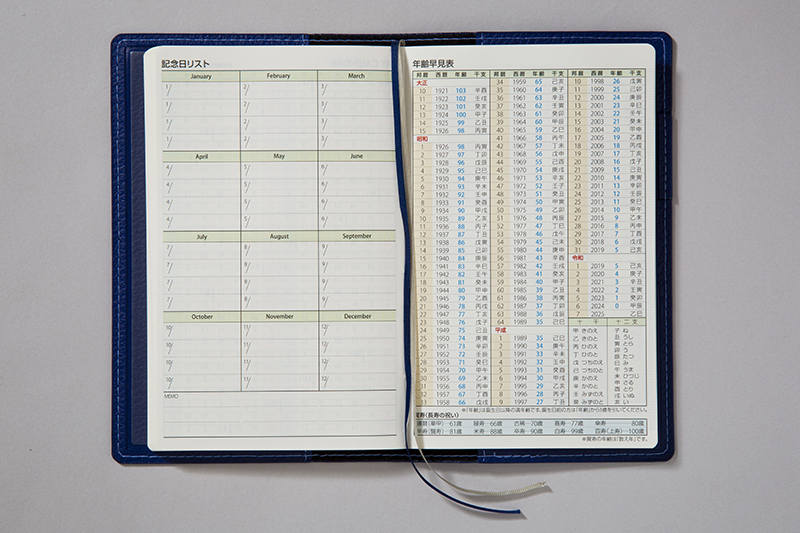 記念日リスト
January February March
1/ 2/ 3/
1/ 2/ 3/
1/ 2/ 3/
1/ 2/ 3/
April May June
4/ 5/ 6/
4/ 5/ 6/
4/ 5/ 6/
4/ 5/ 6/
July August September
7/ 8/ 9/
7/ 8/ 9/
7/ 8/ 9/
7/ 8/ 9/
October November December
10/ 11/ 12/
10/ 11/ 12/
10/ 11/ 12/
10/ 11/ 12/
MEMO
年齢早見表
邦暦 西暦 年齢 干支
大正
10 1921 103 辛酉
11 1922 102 壬戌
12 1923 101 癸亥
13 1924 100 甲子
14 1925 99 乙丑
15 1926 98 丙寅
昭和
1 1926 98 丙寅
2 1927 97 丁卯
3 1928 96 戊辰
4 1929 95 己巳
5 1930 94 庚午
6 1931 93 辛未
7 1932 92 壬申
8 1933 91 癸酉
9 1934 90 甲戌
10 1935 89 乙亥
11 1936 88 丙子
12 1937 87 丁丑
13 1938 86 戊寅
14 1939 85 己卯
15 1940 84 庚辰
16 1941 83 辛巳
17 1942 82 壬午
18 1943 81 癸未
19 1944 80 甲申
20 1945 79 乙酉
21 1946 78 丙戌
22 1947 77 丁亥
23 1948 76 戊子
24 1949 75 己丑
25 1950 74 庚寅
26 1951 73 辛卯
27 1952 72 壬辰
28 1953 71 癸巳
29 1954 70 甲午
30 1955 69 乙未
31 1956 68 丙申
32 1957 67 丁酉
33 1958 66 戊戌
邦暦 西暦 年齢 干支
34 1959 65 己亥
35 1960 64 庚子
36 1961 63 辛丑
37 1962 62 壬寅
38 1963 61 癸卯
39 1964 60 甲辰
40 1965 59 乙巳
41 1966 58 丙午
42 1967 57 丁未
43 1968 56 戊申
44 1969 55 己酉
45 1970 54 庚戌
46 1971 53 辛亥
47 1972 52 壬子
48 1973 51 癸丑
49 1974 50 甲寅
50 1975 49 乙卯
51 1976 48 丙辰
52 1977 47 丁巳
53 1978 46 戊午
54 1979 45 己未
55 1980 44 庚申
56 1981 43 辛酉
57 1982 42 壬戌
58 1983 41 癸亥
59 1984 40 甲子
60 1985 39 乙丑
61 1986 38 丙寅
62 1987 37 丁卯
63 1988 36 戊辰
64 1989 35 己巳
平成
1 1989 35 己巳
2 1990 34 庚午
3 1991 33 辛未
4 1992 32 壬申
5 1993 31 癸酉
6 1994 30 甲戌
7 1995 29 乙亥
8 1996 28 丙子
9 1997 27 丁丑
邦暦 西暦 年齢 干支
10 1998 26 戊寅
11 1999 25 己卯
12 2000 24 庚辰
13 2001 23 辛巳
14 2002 22 壬午
15 2003 21 癸未
16 2004 20 甲申
17 2005 19 乙酉
18 2006 18 丙戌
19 2007 17 丁亥
20 2008 16 戊子
21 2009 15 己丑
22 2010 14 庚寅
23 2011 13 辛卯
24 2012 12 壬辰
25 2013 11 癸巳
26 2014 10 甲午
27 2015 9 乙未
28 2016 8 丙申
29 2017 7 丁酉
30 2018 6 戊戌
31 2019 5 己亥
令和
1 2019 5 己亥
2 2020 4 庚子
3 2021 3 辛丑
4 2022 2 壬寅
5 2023 1 癸卯
6 2024 0 甲辰
7 2025 乙巳
十干 十二支
甲 きのえ
乙 きのと
丙 ひのえ
丁 ひのと
戊 つちのえ
己 つちのと
庚 かのえ
辛 かのと
壬 みずのえ
癸 みずのと
子 ね
丑 うし
寅 とら
卯 う
辰 たつ
巳 み
午 うま
未 ひつじ
申 さる
酉 とり
戌 いぬ
亥 い
*「年齢」は誕生日以降の満年齢です。誕生日前の方は「年齢」から1歳を引いてください。
寿(長寿の祝い)
還暦(華甲)―61歳 緑寿―66歳 古稀―70歳 喜寿―77歳 傘寿――80歳
半寿(盤寿)―81歳 米寿―88歳 卒寿―90歳 白寿―99歳 百寿(上寿)―100歳
*賀寿の年齢は「数え年」です。